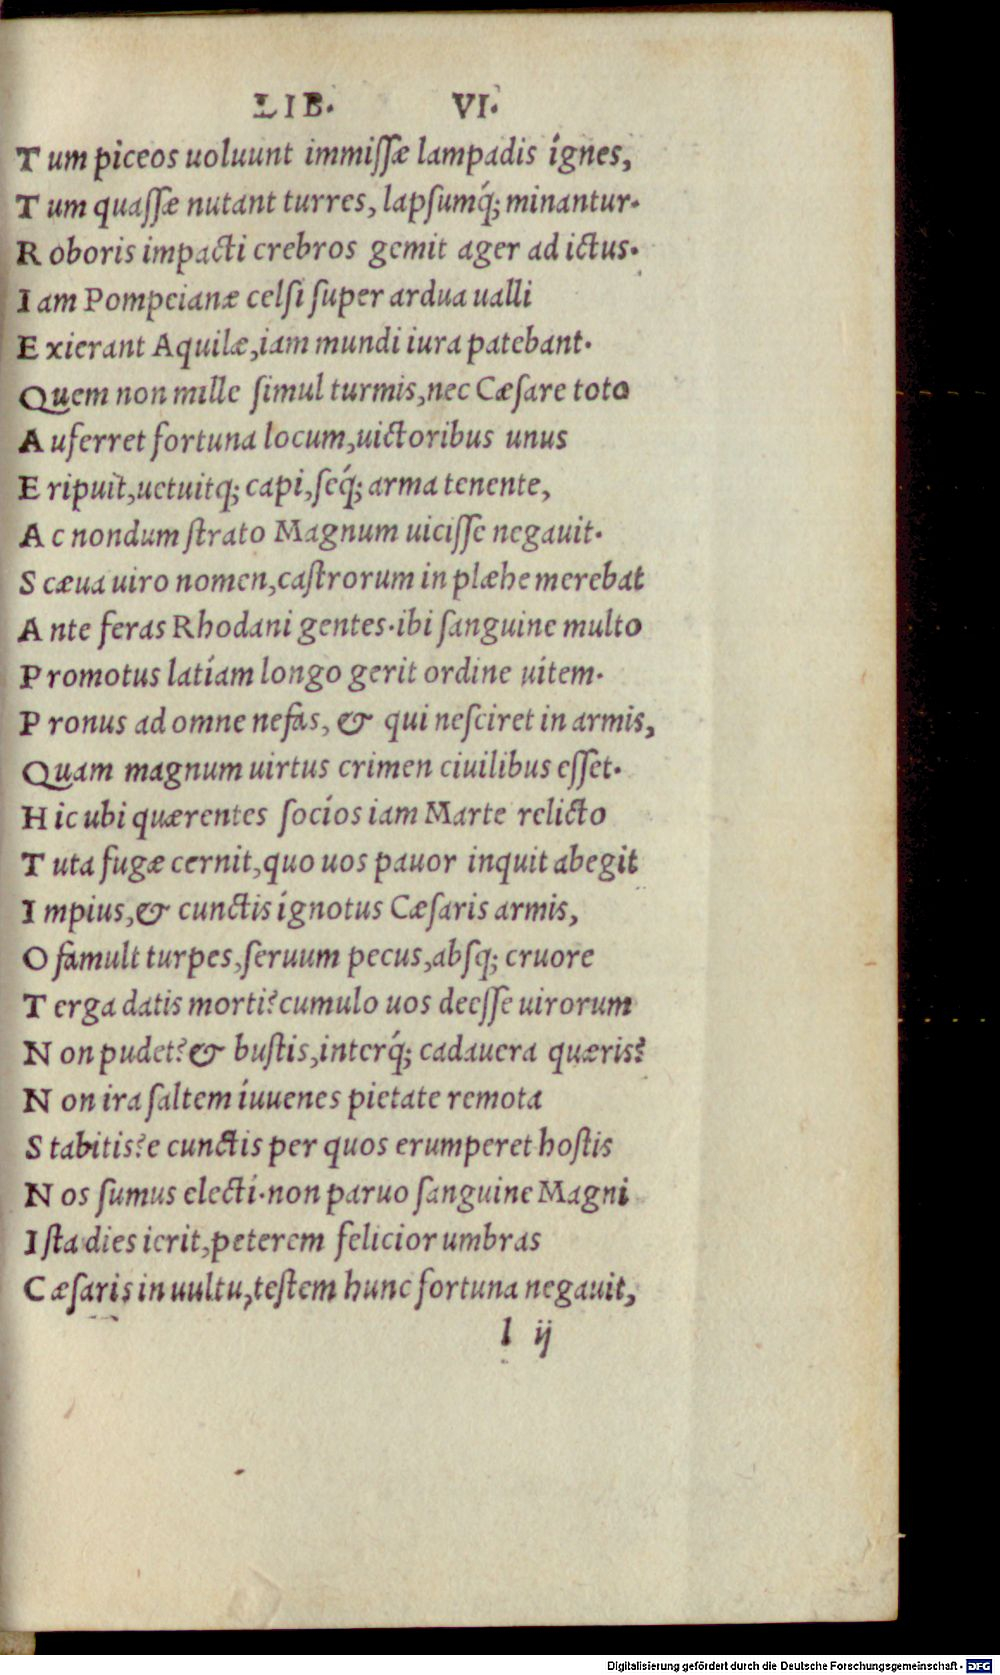 LIB. VI.
T um piceos uoluunt immiſſæ lampadis ignes,
T um quaſſæ nutant turres, lapſumq́; minantur.
R oboris impacti crebros gemit ager ad ictus.
I am Pompeianæ celſi ſuper ardua ualli
E xierant Aquilæ,iam mundi iura patebant.
Quem non mille ſimul turmis,nec Cæſare toto
A uferret fortuna locum,uictoribus unus
E ripuit,uetuitq; capi,ſeq́; arma tenente,
A c nondum ſtrato Magnum uiciſſe negauit.
S cæua uiro nomen,caſtrorum in plæhe merebat
A nte feras Rhodani gentes.ibi ſanguine multo
P romotus latiam longo gerit ordine uitem.
P ronus ad omne nefas, & qui neſciret in armis,
Quam magnum uirtus crimen ciuilibus eſſet.
H ic ubi quærentes ſocios iam Marte relicto
T uta fugæ cernit,quo uos pauor inquit abegit
I mpius,& cunctis ignotus Cæſaris armis,
O famult turpes,ſeruum pecus,abſq; cruore
T erga datis morti?cumulo uos deeſſe uirorum
N on pudet?& buſtis,interq́; cadauera quæris?
N on ira ſaltem iuuenes pietate remota
S tabitis?e cunctis per quos erumperet hoſtis
N os ſumus electi.non paruo ſanguine Magni
I ſta dies ierit,peterem felicior umbras
C æſaris in uultu,teſtem hunc fortuna negauit,
l ij
Digitalisierung gefördert durch die Deutsche Forschungsgemeinschaft - DFG